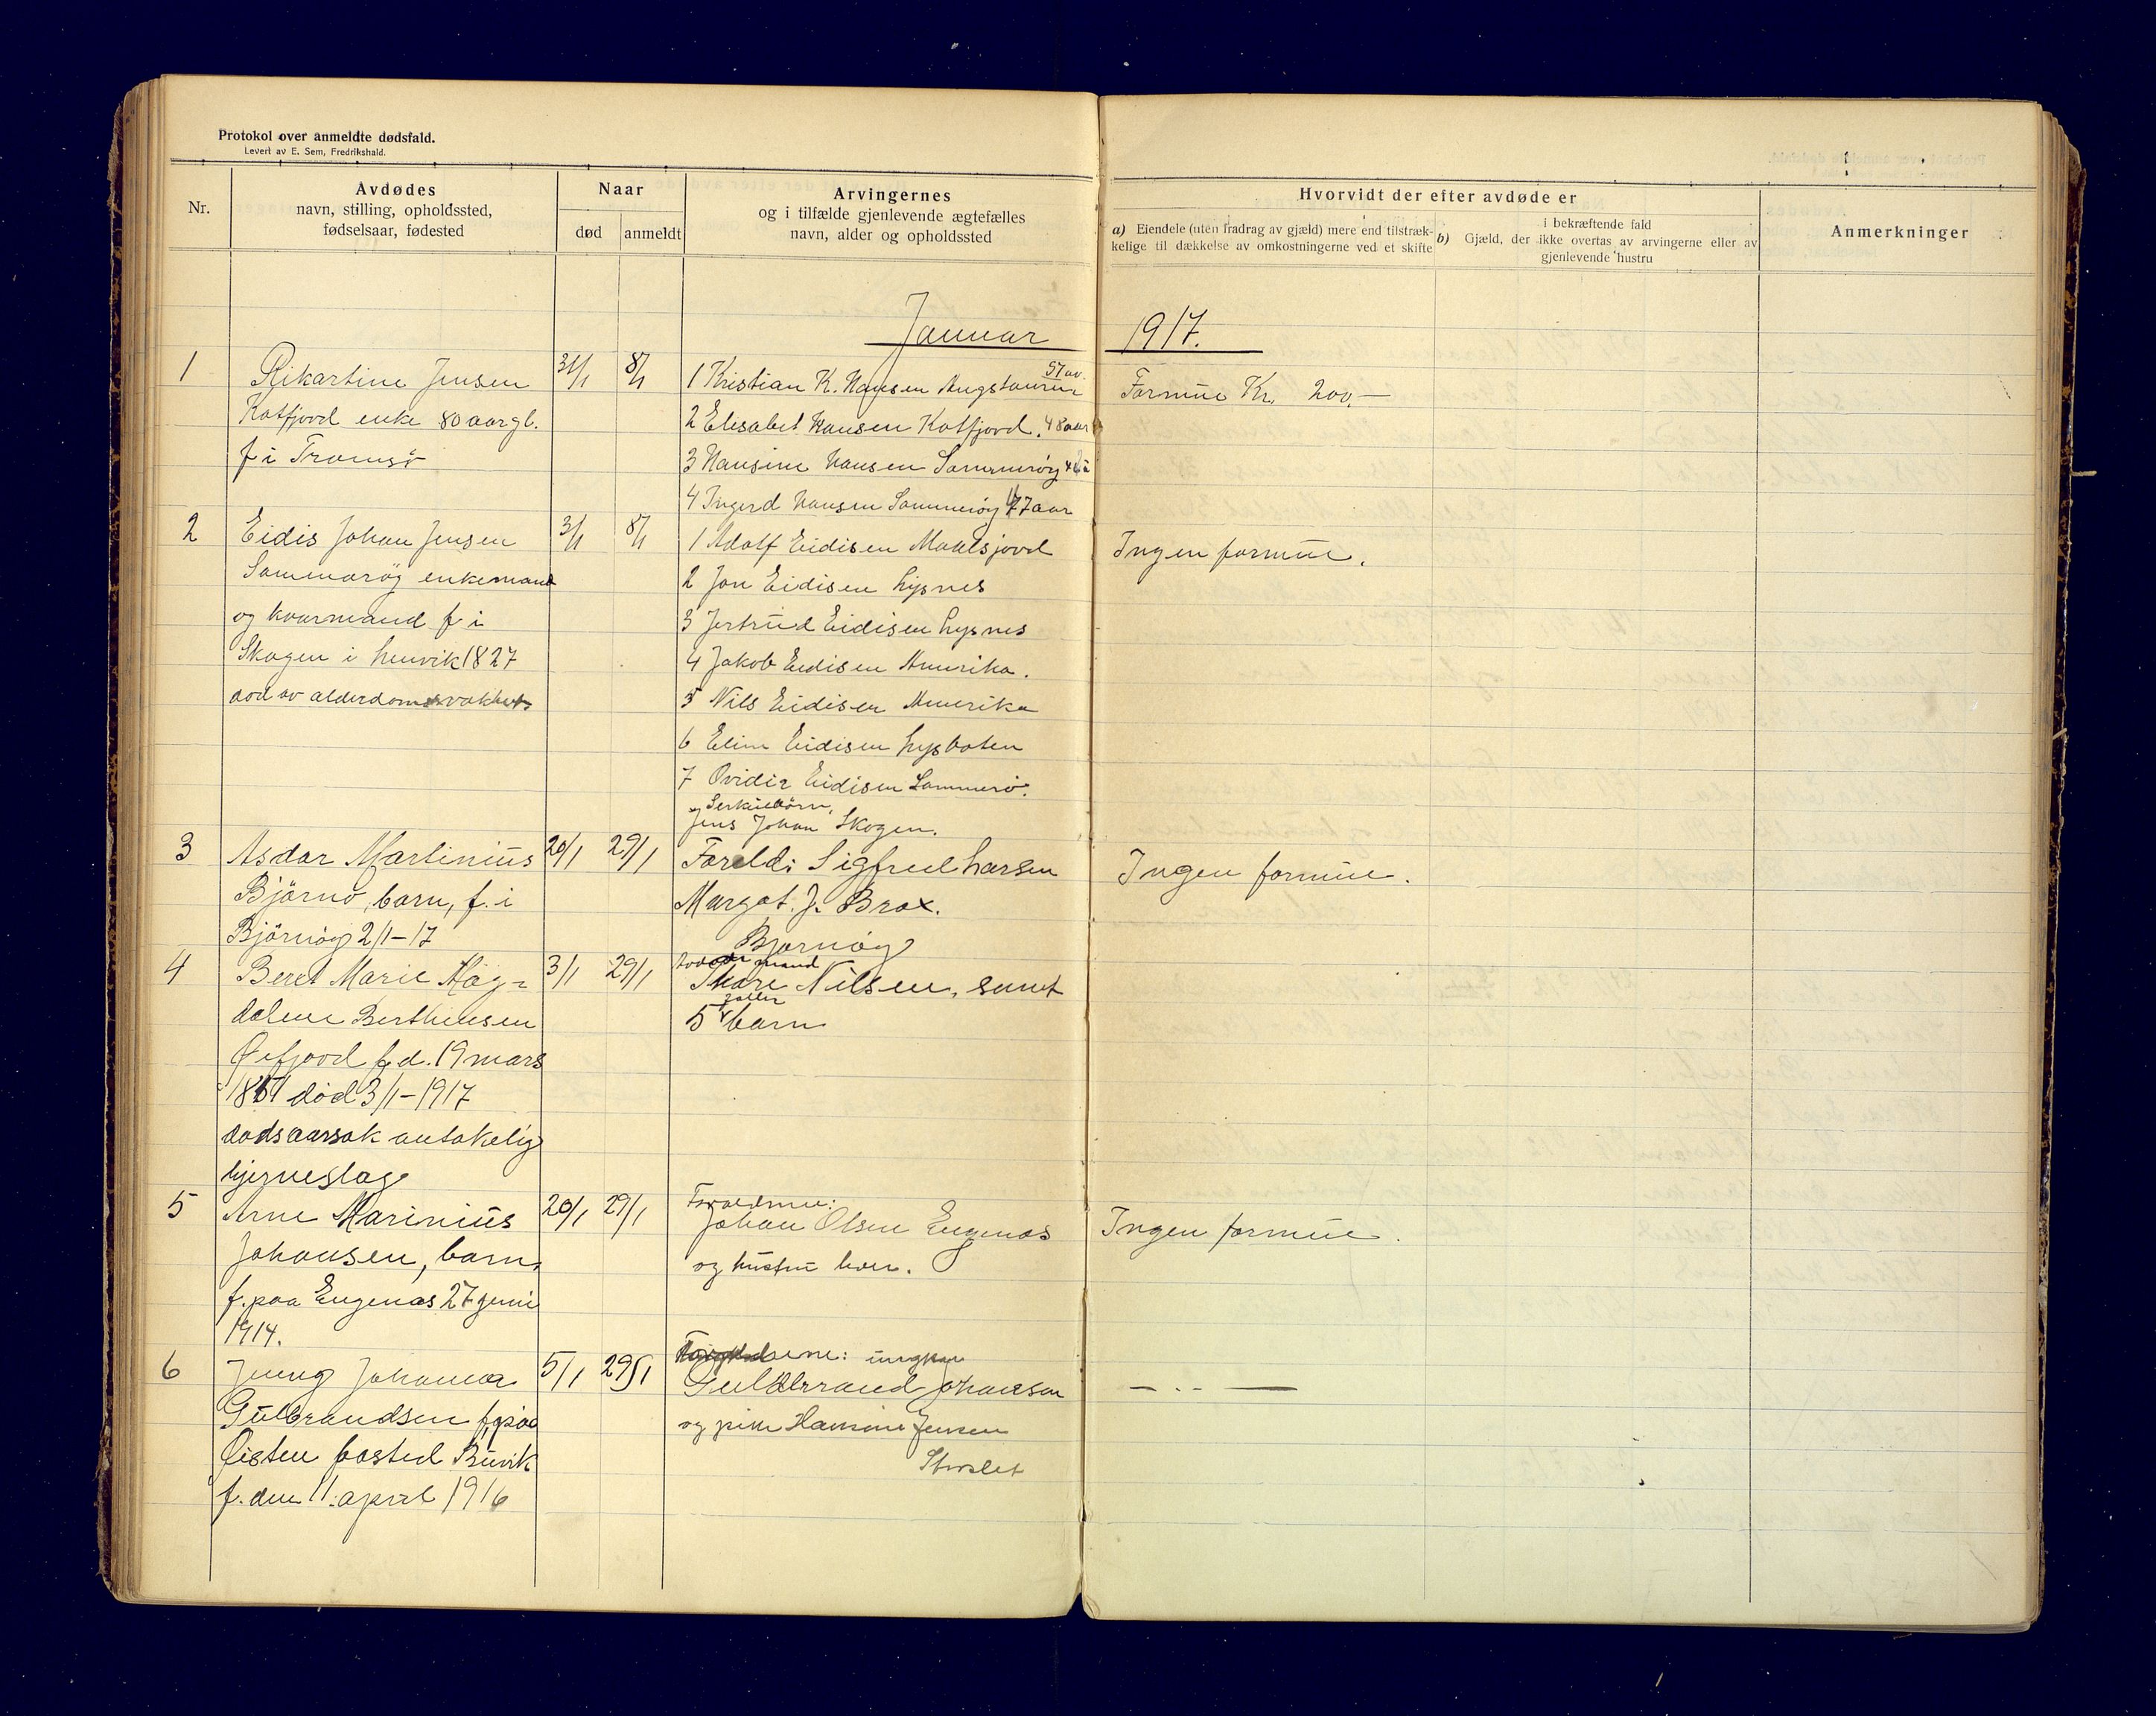 Protokol over anmeldte dødsfald.
Levert av E. Sem, Fredrikshald.
Nr.
Avdødes
navn, stilling, opholdssted,
fødselsaar, fødested
Naar
død
anmeldt
Arvingernes
og i tilfælde gjenlevende ægtefælles
navn, alder og opholdssted
Hvorvidt der efter avdøde er
a) Eiendele (uten fradrag av gjæld) mere end tilstræk-
kelige til dækkelse av omkostningerne ved et skifte
i bekræftende fald
b) Gjæld, der ikke overtas av arvingerne eller av
gjenlevende hustru
Anmerkninger
Januar 1917.
1
Rikartine Jensen
Katfjord enke 80 aar gl.
f i Tromsø
8/1
57 aar
1 Kristian K. Hansen
2 Elisabet Hansen Katfjord. 48 aar
3 Hansine Hansen Sommerøy
4 Ingerd Hansen Sommerøy 47 aar
Formue Kr. 200,—
2
Eidis Johan Jensen
Sommerøy enkemand
og kvarmand f i
Skogen i Lenvik 1827
død av alderdomsvakhet
3/1
8/1
1 Adolf Eidisen Maalsjord
2 Jon Eidisen Lysnes
3 Jertrud Eidisen Lysnes
4 Jakob Eidisen Amerika.
5 Nils Eidisen Amerika
6 Elim Eidisen Lysboten
7 Ovidia Eidisen Sommerø.
Jens Johan Skogen.
Ingen formue.
3
Asdor Martinius
Bjørnø, barn, f. i
Bjørnøy 2/1-17
20/1
29/1
Foreld: Sigfred Larsen
Margot. J. Brox.
Bjørnøy
Ingen formue.
4
Beret Marie Mag-
dalene Berthensen
fd. 19 mars
død 3/1-1917
dødsaarsak antakelig
hjerneslag
3/1
29/1
mand
Nilsen, samt
5 barn
5
Arne Marinius
Johansen, barn,
f. paa Engenæs 27 juni
1914.
20/1
29/1
Forældrene:
Johan Olsen Engenæs
og hustru lever.
Ingen formue.
6
Johanna
Gulbrandsen
Øisten bosted Buvik
f. den 11. april 1916
5/1
29/1
ungkar
Guldbrand Johansen
og pike Hansine Jensen
Storslet
— „ —